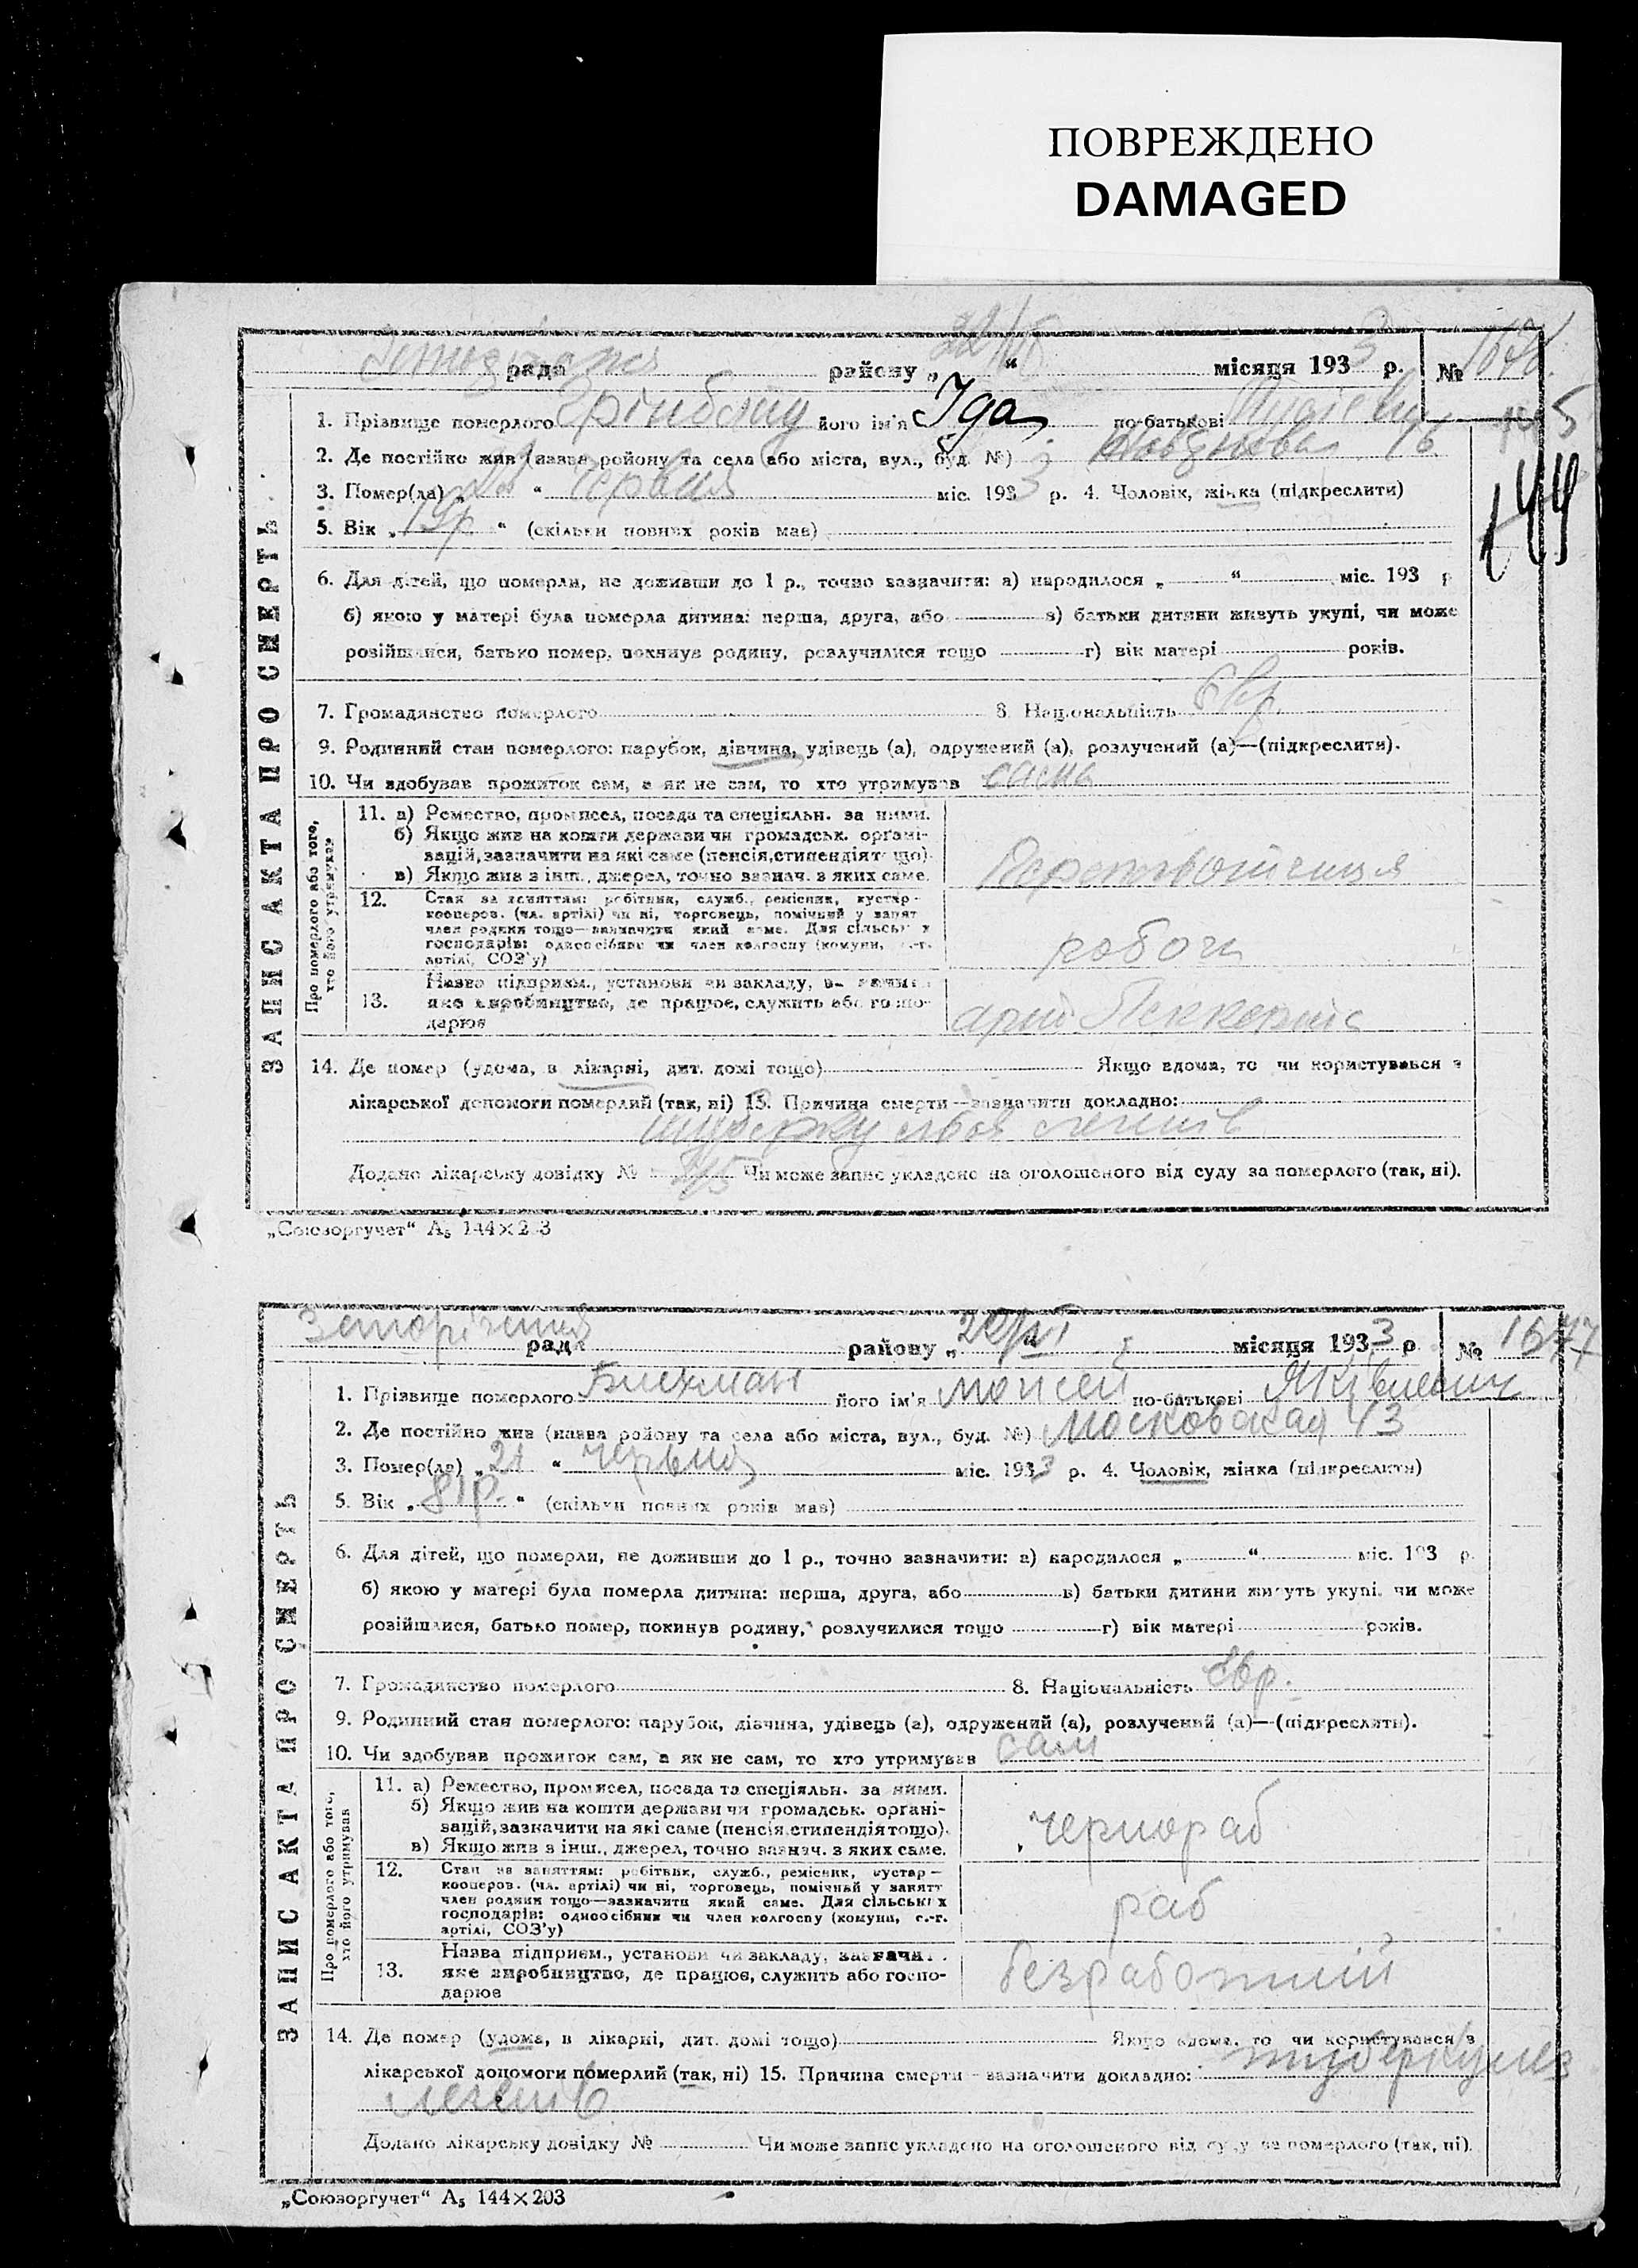 ПОВРЕЖДЕНО
DAMAGED
рада району „ 22/VI “ місяця 1933 р. №
1. Прізвище померлого його ім'я Іда по-батькові
2. Де постійно жив (назва району та села або міста, вул., буд. №) 16
3. Помер(ла) „ “ червня міс. 1933 р. 4. Чоловік, жінка (підкреслити)
144
5. Вік „ 19р “ (скільки повних років мав)
6. Для дітей, що померли, не доживши до 1 р., точно зазначити: а) народилося „ “ міс. 193 р
б) якою у матері була померла дитина: перша, друга, або в) батьки дитини живуть укупі, чи може
розійшлися, батько помер, покинув родину, розлучилися тощо г) вік матері років.
7. Громадянство померлого 8. Національність євр.
9. Родинний стан померлого: парубок, дівчина, удівець (а), одружений (а), розлучений (а)—(підкреслити).
10. Чи здобував прожиток сам, а як не сам, то хто утримував сама
11. а) Ремество, промисел, посада та спеціяльн. за ними.
б) Якщо жив на кошти держави чи громадськ. органі-
зацій, зазначити на які саме (пенсія, стипендія тощо).
в) Якщо жив з інш., джерел, точно зазнач. з яких саме.
12. Стан за заняттям: робітник, служб., ремісник, кустар-
кооперов. (чл. артілі) чи ні, торговець, помічний у занят
член родини тощо—зазначити який саме. Для сільських
господарів: одноосібник чи член колгоспу (комуни, с.-г.
артілі, СОЗ'у)
робоч
13. Назва підприєм., установи чи закладу, зазначит
яке виробництво, де працює, служить або госпо-
дарює
Про померлого або того,
хто його утримував
14. Де помер (удома, в лікарні, дит. домі тощо) Якщо вдома, то чи користувався з
лікарської допомоги померлий (так, ні) 15. Причина смерти—зазначити докладно:
туберкульоз легенів
Додано лікарську довідку № Чи може запис укладено на оголошеного від суду за померлого (так, ні).
ЗАПИС АКТА ПРО СМЕРТЬ
„Союзоргучет“ А5 144×203
рада району „ 22/VI “ місяця 1933 р № 1677
1. Прізвище померлого Блехман його ім'я Мойсей по-батькові Яківлевич
2. Де постійно жив (назва району та села або міста, вул., буд. №) Московская 43
3. Помер(ла) „ 21 “ червня міс. 1933 р. 4. Чоловік, жінка (підкреслити)
5. Вік „ 81р. “ (скільки повних років мав)
6. Для дітей, що померли, не доживши до 1 р., точно зазначити: а) народилося „ “ міс. 193 р.
б) якою у матері була померла дитина: перша, друга, або в) батьки дитини живуть укупі, чи може
розійшлися, батько помер, покинув родину, розлучилися тощо г) вік матері років.
7. Громадянство померлого 8. Національність євр.
9. Родинний стан померлого: парубок, дівчина, удівець (а), одружений (а), розлучений (а)—(підкреслити).
10. Чи здобував прожиток сам, а як не сам, то хто утримував сам
11. а) Ремество, промисел, посада та спеціяльн. за ними.
б) Якщо жив на кошти держави чи громадськ. органі-
зацій, зазначити на які саме (пенсія, стипендія тощо).
в) Якщо жив з інш., джерел, точно зазнач. з яких саме.
чернораб
12. Стан за заняттям: робітник, служб., ремісник, кустар—
кооперов. (чл. артілі) чи ні, торговець, помічний у занятт
член родини тощо—зазначити який саме. Для сільських
господарів: одноосібник чи член колгоспу (комуни, с.-г.
артілі, СОЗ'у)
раб
13. Назва підприєм., установи чи закладу, зазначит.
яке виробництво, де працює, служить або госпо-
дарює
безработний
Про померлого або того,
хто його утримував
14. Де помер (удома, в лікарні, дит. домі тощо) Якщо вдома, то чи користувався з
лікарської допомоги померлий (так, ні) 15. Причина смерти—зазначити докладно: туберкульоз
легенів
Додано лікарську довідку № Чи може запис укладено на оголошеного від суду за померлого (так, ні).
ЗАПИС АКТА ПРО СМЕРТЬ
„Союзоргучет“ А5 144×203